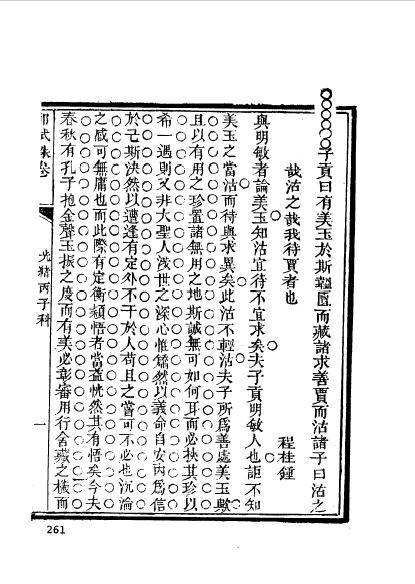 子貢曰有美玉於斯韞匵而藏諸求善賈而沽諸子曰沽之
哉沽之哉我待賈者也
程桂鍾
與明敏者論美玉知沽宜待不宜求矣夫子貢明敏人也詎不知
美玉之當沽而待與求異矣此沽不輕沽夫子所爲善處美玉歟
且以有用之珍置諸無用之地斯誠無可如何耳而必挾其珍以
希一遇則又非大聖人淑世之深心惟矯然以義命自安丙爲信
於己斯決然以遭逢有定外不干於人苟且之嘗可不必也沉淪
之感可無庸也而此際有定衡穎悟者當爽恍然其有悟矣今夫
春秋有孔子抱金聲玉振之度而有美必彰審用行舍藏之機而
光緒丙子科
一
261